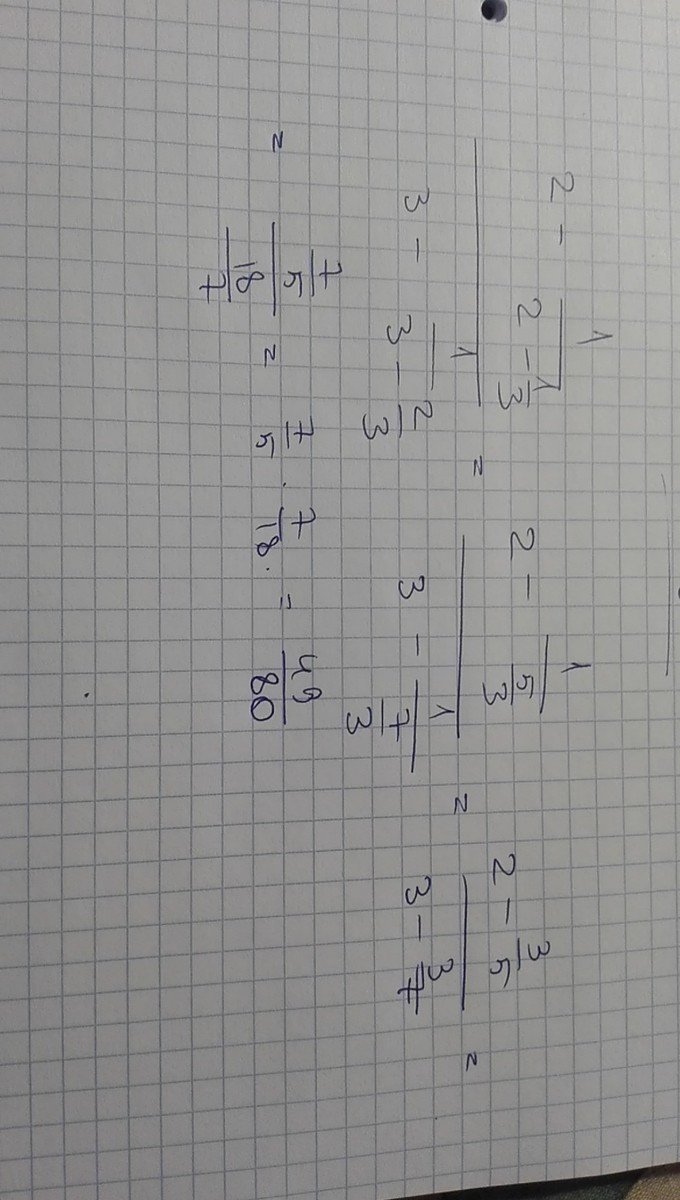 (2 - 1/(2 - 1/3))/(3 - 1/(3 - 2/3)) = (2 - 1/(5/3))/(3 - 1/(7/3)) = (2 - 3/5)/(3 - 3/7) =
= (7/5)/(18/7) = 7/5 · 7/18 = 49/80